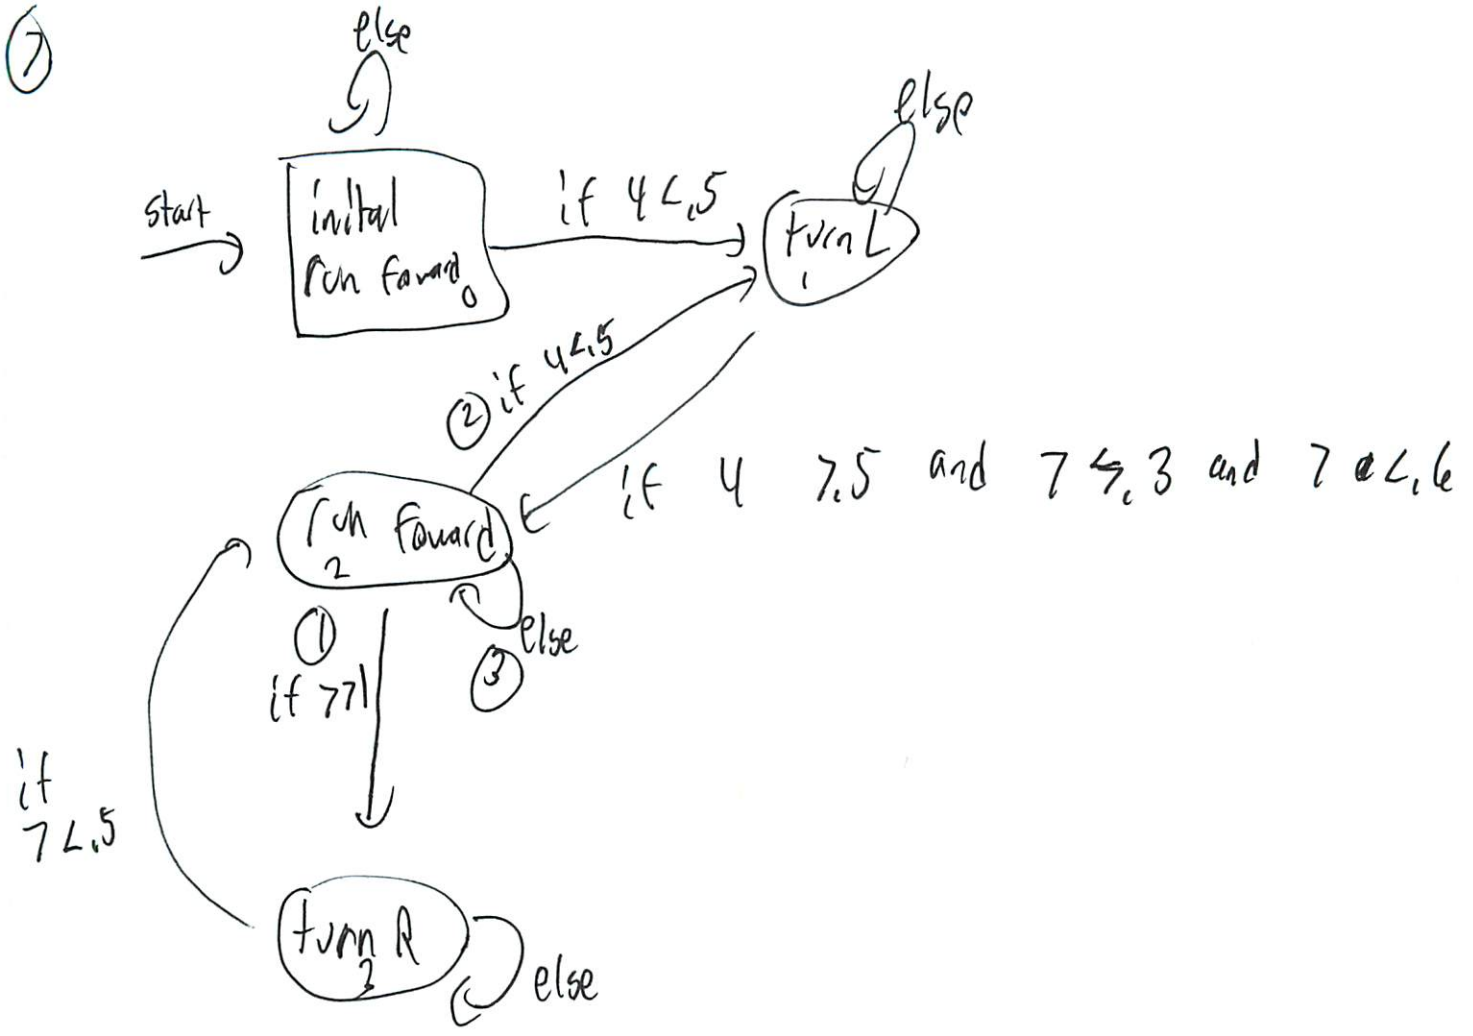 7
else
else
start
inital
run foward
0
if 4 <.5
turn L
1
② if 4<.5
if 4 >.5 and 7 >.3 and 7 <.6
run foward
2
①
if 7>1
else
③
if
7 <.5
turn R
3
else